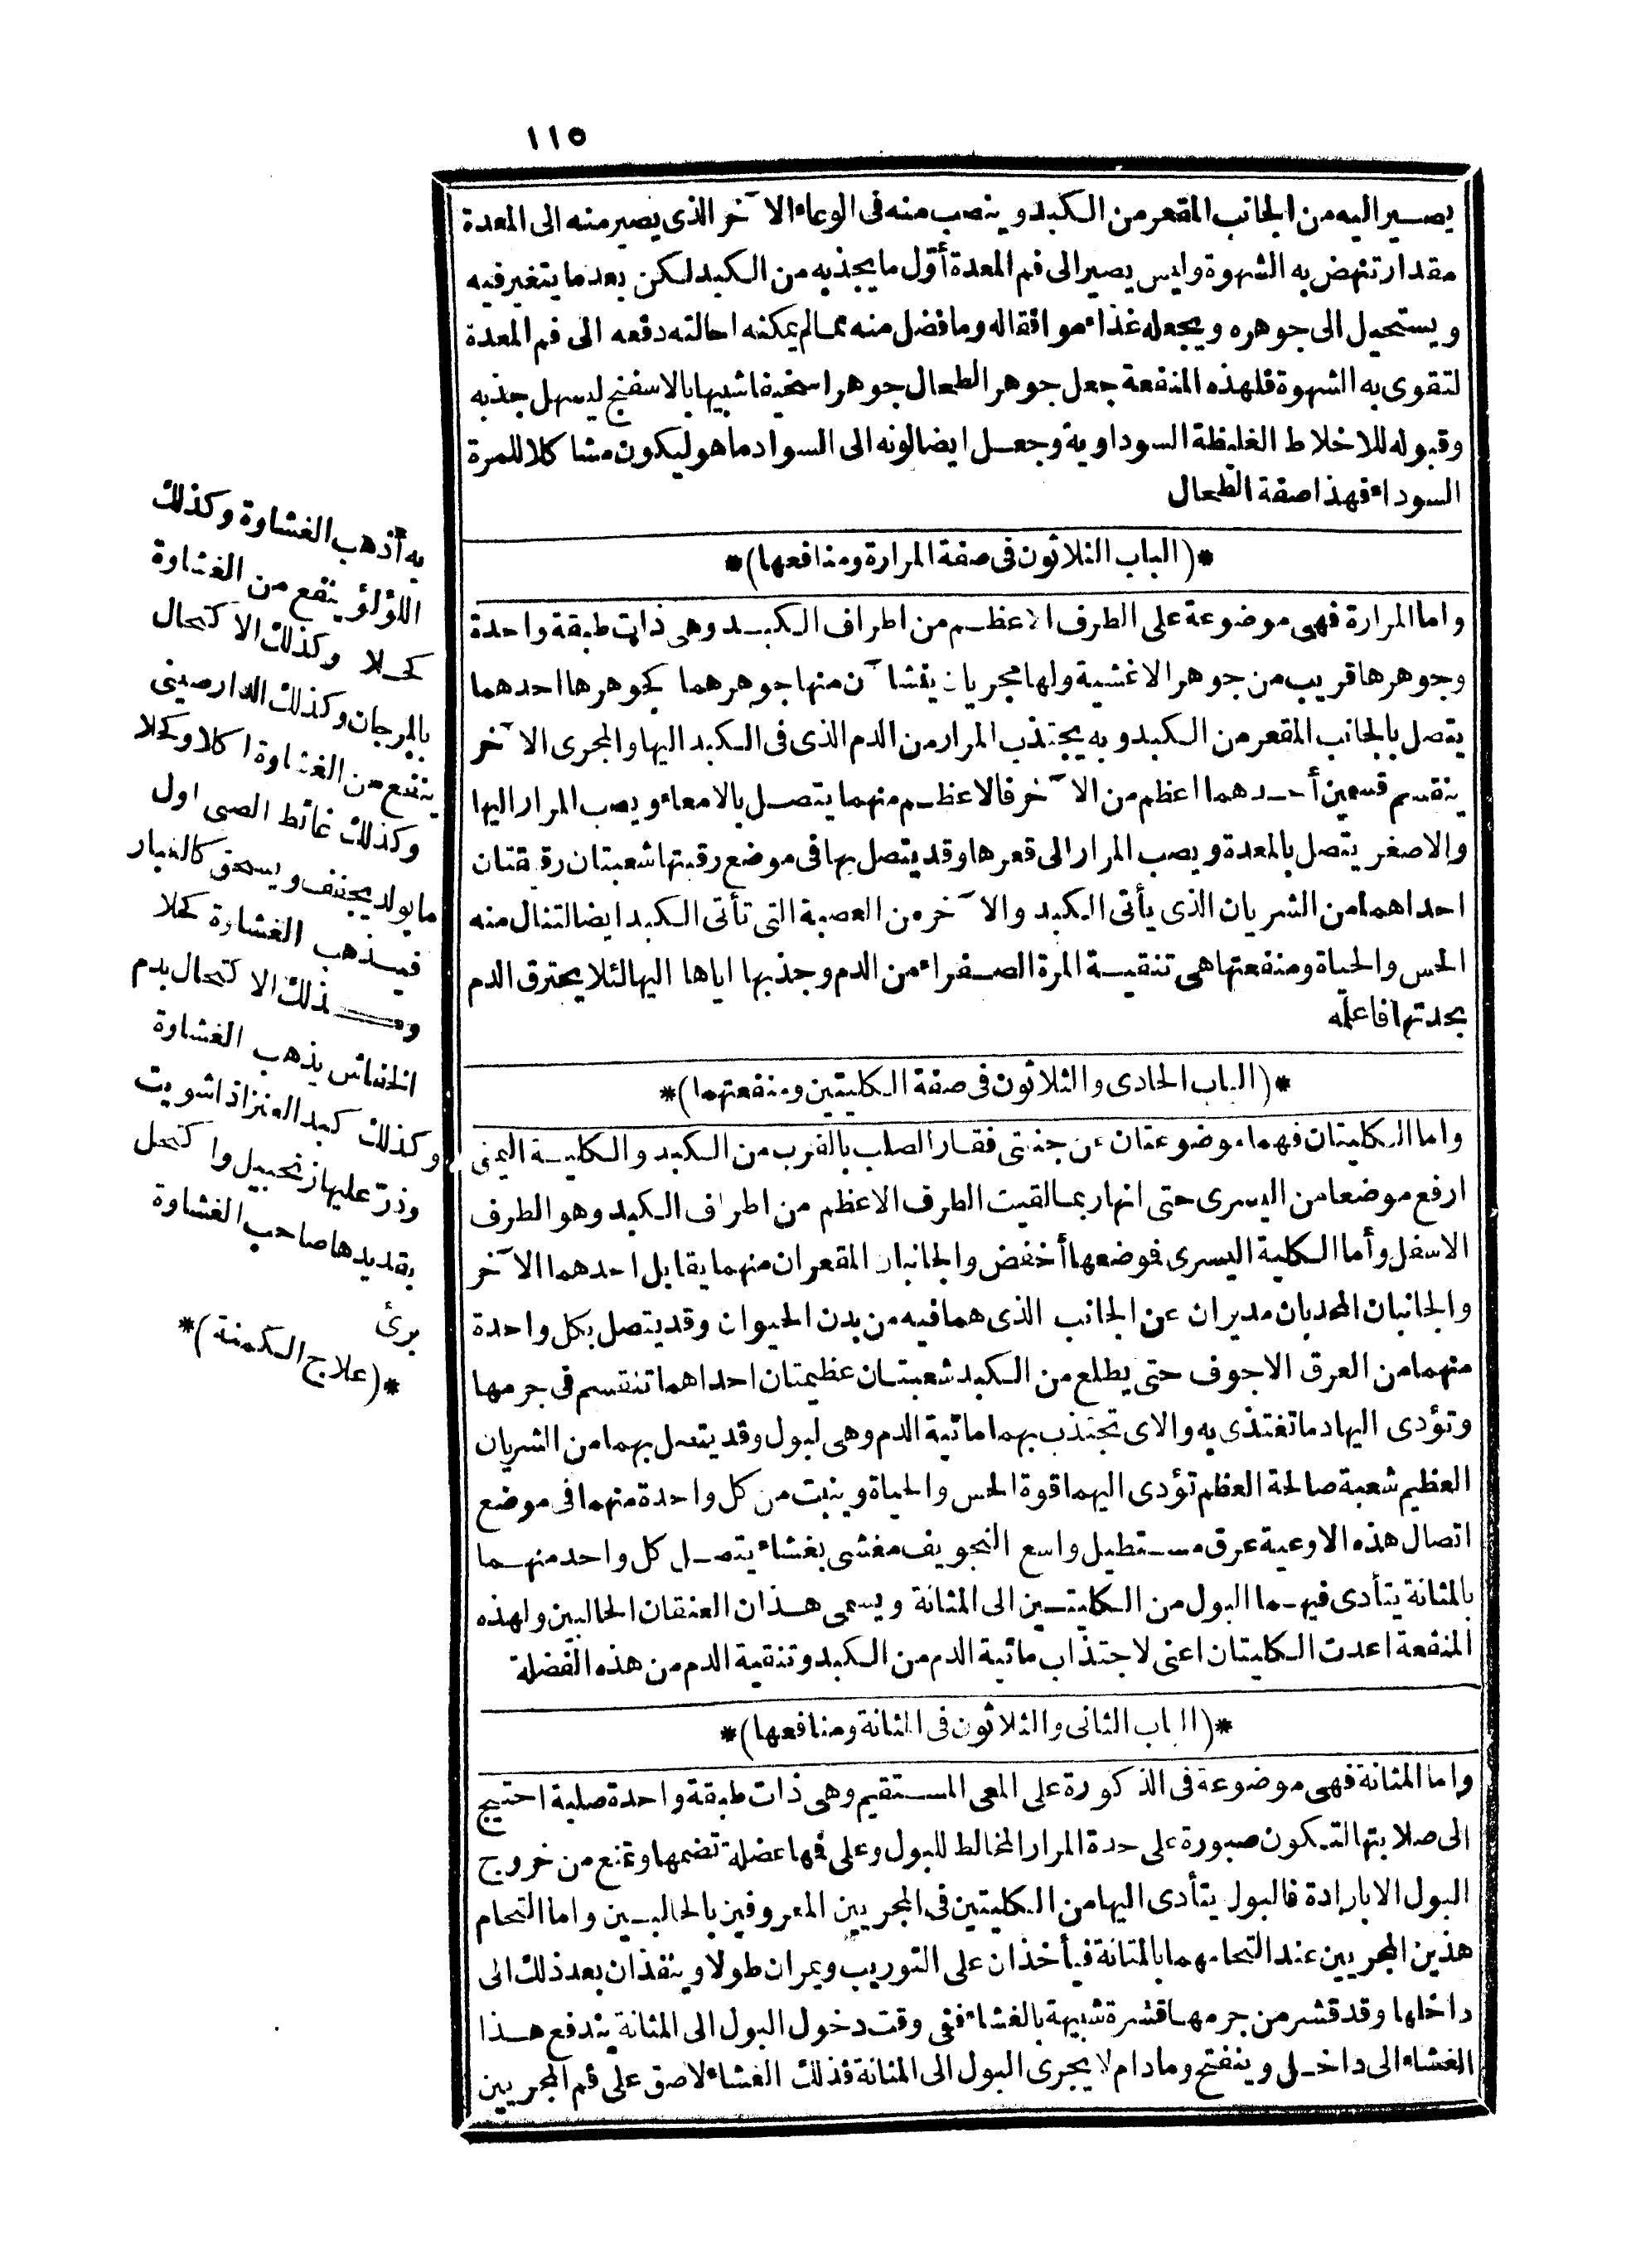 ١١٥
يصير اليه من الجانب المقعر من الكبد وينصب منه فى الوعاء الآخر الذى يصير منه الى المعدة
مقدار تنهض به الشهوة وليس يصير الى فم المعدة أوّل ما يجذبه من الكبد لكن بعد ما يتغير فيه
ويستحيل الى جوهره ويجعله غذاء موافقا له وما فضل منه مما لم يمكنه احالته دفعه الى فم المعدة
لتقوى به الشهوة فلهذه المنفعة جعل جوهر الطحال جوهرا سخيفا شبيها بالاسفنج ليسهل جذبه
وقبوله للاخلاط الغليظة السوداوية وجعل ايضا لونه الى السواد ما هو ليكون مشاكلا للمرة
السوداء فهذا صفة الطحال
*(الباب الثلاثون فى صفة المرارة ومنافعها)*
واما المرارة فهى موضوعة على الطرف الاعظم من اطراف الكبد وهى ذات طبقة واحدة
وجوهرها قريب من جوهر الاغشية ولها مجريان ينشآن منها جوهرهما كجوهرها احدهما
يتصل بالجانب المقعر من الكبد وبه يجتذب المرار من الدم الذى فى الكبد اليها والمجرى الآخر
ينقسم قسمين أحدهما اعظم من الآخر فالاعظم منهما يتصل بالامعاء ويصب المرار اليها
والاصغر يتصل بالمعدة ويصب المرار الى قعرها وقد يتصل بها فى موضع رقبتها شعبتان رقيقتان
احداهما من الشريان الذى يأتى الكبد والآخر من العصبة التى تأتى الكبد ايضا لتنال منه
الحس والحياة ومنفعتها هى تنقية المرة الصفراء من الدم وجذبها اياها اليها لئلا يحترق الدم
بحدتها فاعلمه
*(الباب الحادى والثلاثون فى صفة الكليتين ومنفعتهما)*
واما الكليتان فهما موضوعتان عن جنبتى فقار الصلب بالقرب من الكبد والكلية اليمنى
ارفع موضعا من اليسرى حتى انها ربما لقيت الطرف الاعظم من اطراف الكبد وهو الطرف
الاسفل وأما الكلية اليسرى فموضعها أخفض والجانبان المقعران منهما يقابل احدهما الآخر
والجانبان المحدبان مديران عن الجانب الذى هما فيه من بدن الحيوان وقد يتصل بكل واحدة
منهما من العرق الاجوف حتى يطلع من الكبد شعبتان عظيمتان احداهما تنقسم فى جرمها
وتؤدى اليها دما تغتذى به والاى تجتذب بهما مائية الدم وهى لبول وقد يتصل بهما من الشريان
العظيم شعبة صالحة العظم تؤدى اليهما قوة الحس والحياة وينبت من كل واحدة منهما فى موضع
اتصال هذه الاوعية عرق مستطيل واسع التجويف مغشى بغشاء يتصل كل واحد منهما
بالمثانة يتأدى فيهما البول من الكليتين الى المثانة ويسمى هذان العنقان الحالبين ولهذه
المنفعة اعدت الكليتان اعنى لاجتذاب مائية الدم من الكبد وتنقية الدم من هذه الفضلة
*(الباب الثانى والثلاثون فى المثانة ومنافعها)*
واما المثانة فهى موضوعة فى الذكورة على المعى المستقيم وهى ذات طبقة واحدة صلبة احتيج
الى صلابتها لتكون صبورة على حدة المرار المخالط للبول وعلى فمها عضلة تضمها وتمنع من خروج
البول الا بارادة فالبول يتأدى اليها من الكليتين فى المجريين المعروفين بالحالبين واما التحام
هذين المجريين عند التحامهما بالمثانة فيأخذان على التوريب ويمران طولا وينفذان بعد ذلك الى
داخلها وقد قشر من جرمها قشرة شبيهة بالغشاء ففى وقت دخول البول الى المثانة يندفع هذا
الغشاء الى داخل وينفتح وما دام لا يجرى البول الى المثانة فذلك الغشاء لاصق على فم المجريين
به أذهب الغشاوة وكذلك
اللؤلؤ ينفع من الغشاوة
كحلا وكذلك الاكتحال
بالمرجان وكذلك الدارصينى
ينفع من الغشاوة اكلا وكحلا
وكذلك غائط الصبى اول
ما يولد يجفف ويسحق كالغبار
فيذهب الغشاوة كحلا
وكذلك الاكتحال بدم
الخفاش يذهب الغشاوة
وكذلك كبد العنز اذا شويت
وذرّ عليها زنجبيل واكتحل
بقديدها صاحب الغشاوة
برئ
*(علاج الكمنة)*